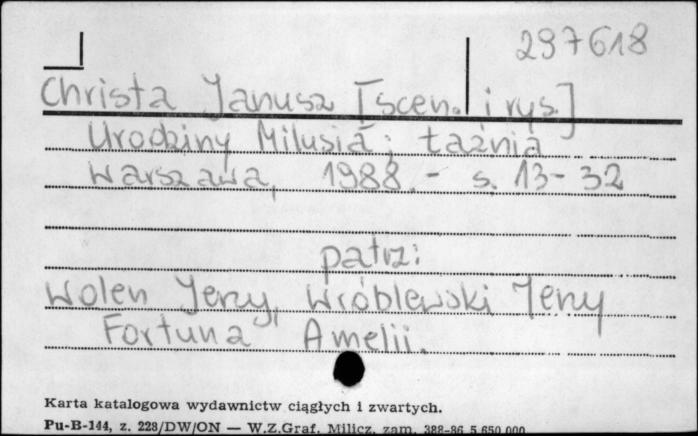 297618
Christa Janusz [scen. i rys.]
Urodziny Milusia ; Łaźnia
Warszawa, 1988. - s. 13-32
patrz:
Wolen Jerzy, Wróblewski Jerzy
Fortuna Amelii.
Karta katalogowa wydawnictw ciągłych i zwartych.
Pu-B-144, z. 228/DW/ON — W.Z.Graf. Milicz, zam. 388-86 5.650.000